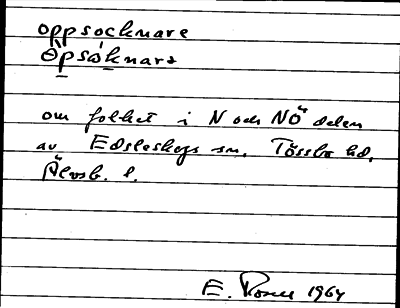 oppsocknare
Öpsåknara
om folket i N och NÖ delen
av Edsleskogs sn. Tössbo hd.
Älvsb. l.
E. Rosell 1964